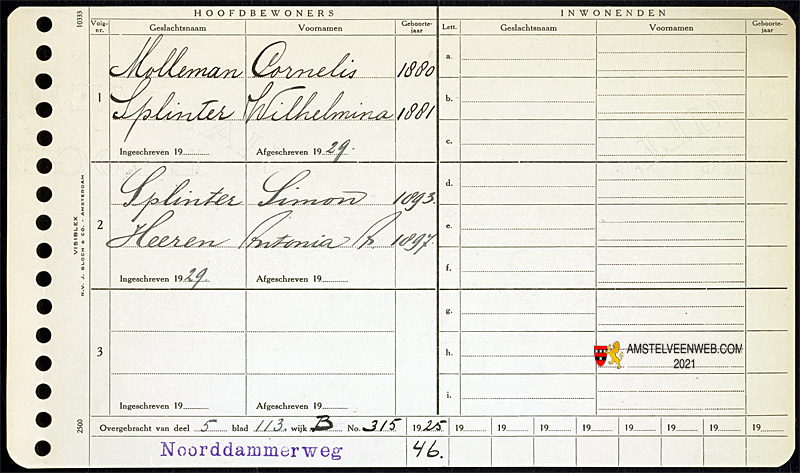 HOOFDBEWONERS
INWONENDEN
Volg-nr. Geslachtsnaam Voornamen Geboorte-jaar Lett. Geslachtsnaam Voornamen Geboorte-jaar
1
Molleman Cornelis 1880
Splinter Wilhelmina 1881
Ingeschreven 19 Afgeschreven 1929.
2
Splinter Simon 1893.
Heeren Antonia R. 1897.
Ingeschreven 1929. Afgeschreven 19
3
Ingeschreven 19 Afgeschreven 19
a.
b.
c.
d.
e.
f.
g.
h.
i.
AMSTELVEENWEB.COM
2021
Overgebracht van deel 5 blad 113. wijk B No. 315 1925 19 19 19 19 19 19 19 19 19
Noorddammerweg 46.
10333
VISIBLEX
N.V. J. BLOCH & CO. - AMSTERDAM
2500